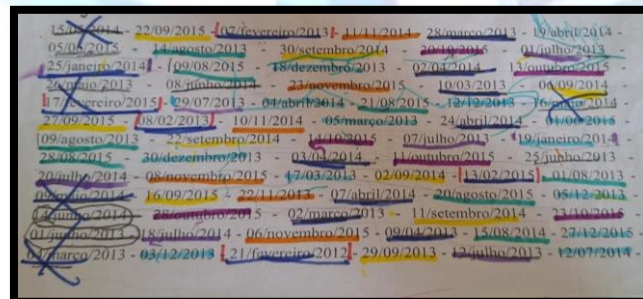 15/05/2014 - 22/09/2015 - 07/fevereiro/2013 - 11/11/2014 - 28/março/2013 - 19/abril/2014 -
05/05/2015 - 14/agosto/2013 - 30/setembro/2014 - 20/10/2015 - 01/julho/2013
25/janeiro/2014 - 09/08/2015 - 18/dezembro/2013 - 02/04/2014 - 13/outubro/2015 -
26/maio/2013 - 08/junho/2014 - 23/novembro/2015 - 10/03/2013 - 06/09/2014
17/fevereiro/2015 - 29/07/2013 - 04/abril/2014 - 21/08/2015 - 12/12/2013 - 16/maio/2014 -
27/09/2015 - 08/02/2013 - 10/11/2014 - 05/março/2013 - 24/abril/2014 - 01/06/2015
09/agosto/2013 - 22/setembro/2014 - 14/10/2015 - 07/julho/2013 - 19/janeiro/2014 -
28/08/2015 - 30/dezembro/2013 - 03/04/2014 - 11/outubro/2015 - 25/junho/2013
20/julho/2014 - 08/novembro/2015 - 17/03/2013 - 02/09/2014 - 13/02/2015 - 01/08/2013
16/09/2015 - 22/11/2013 - 07/abril/2014 - 20/agosto/2015 - 05/12/2013
28/outubro/2015 - 02/março/2013 - 11/setembro/2014 - 23/10/2015
01/junho/2013 - 18/julho/2014 - 06/novembro/2015 - 09/04/2013 - 15/08/2014 - 27/12/2015 -
março/2013 - 03/12/2013 - 21/fevereiro/2012 - 29/09/2013 - 12/julho/2013 - 12/07/2014 -